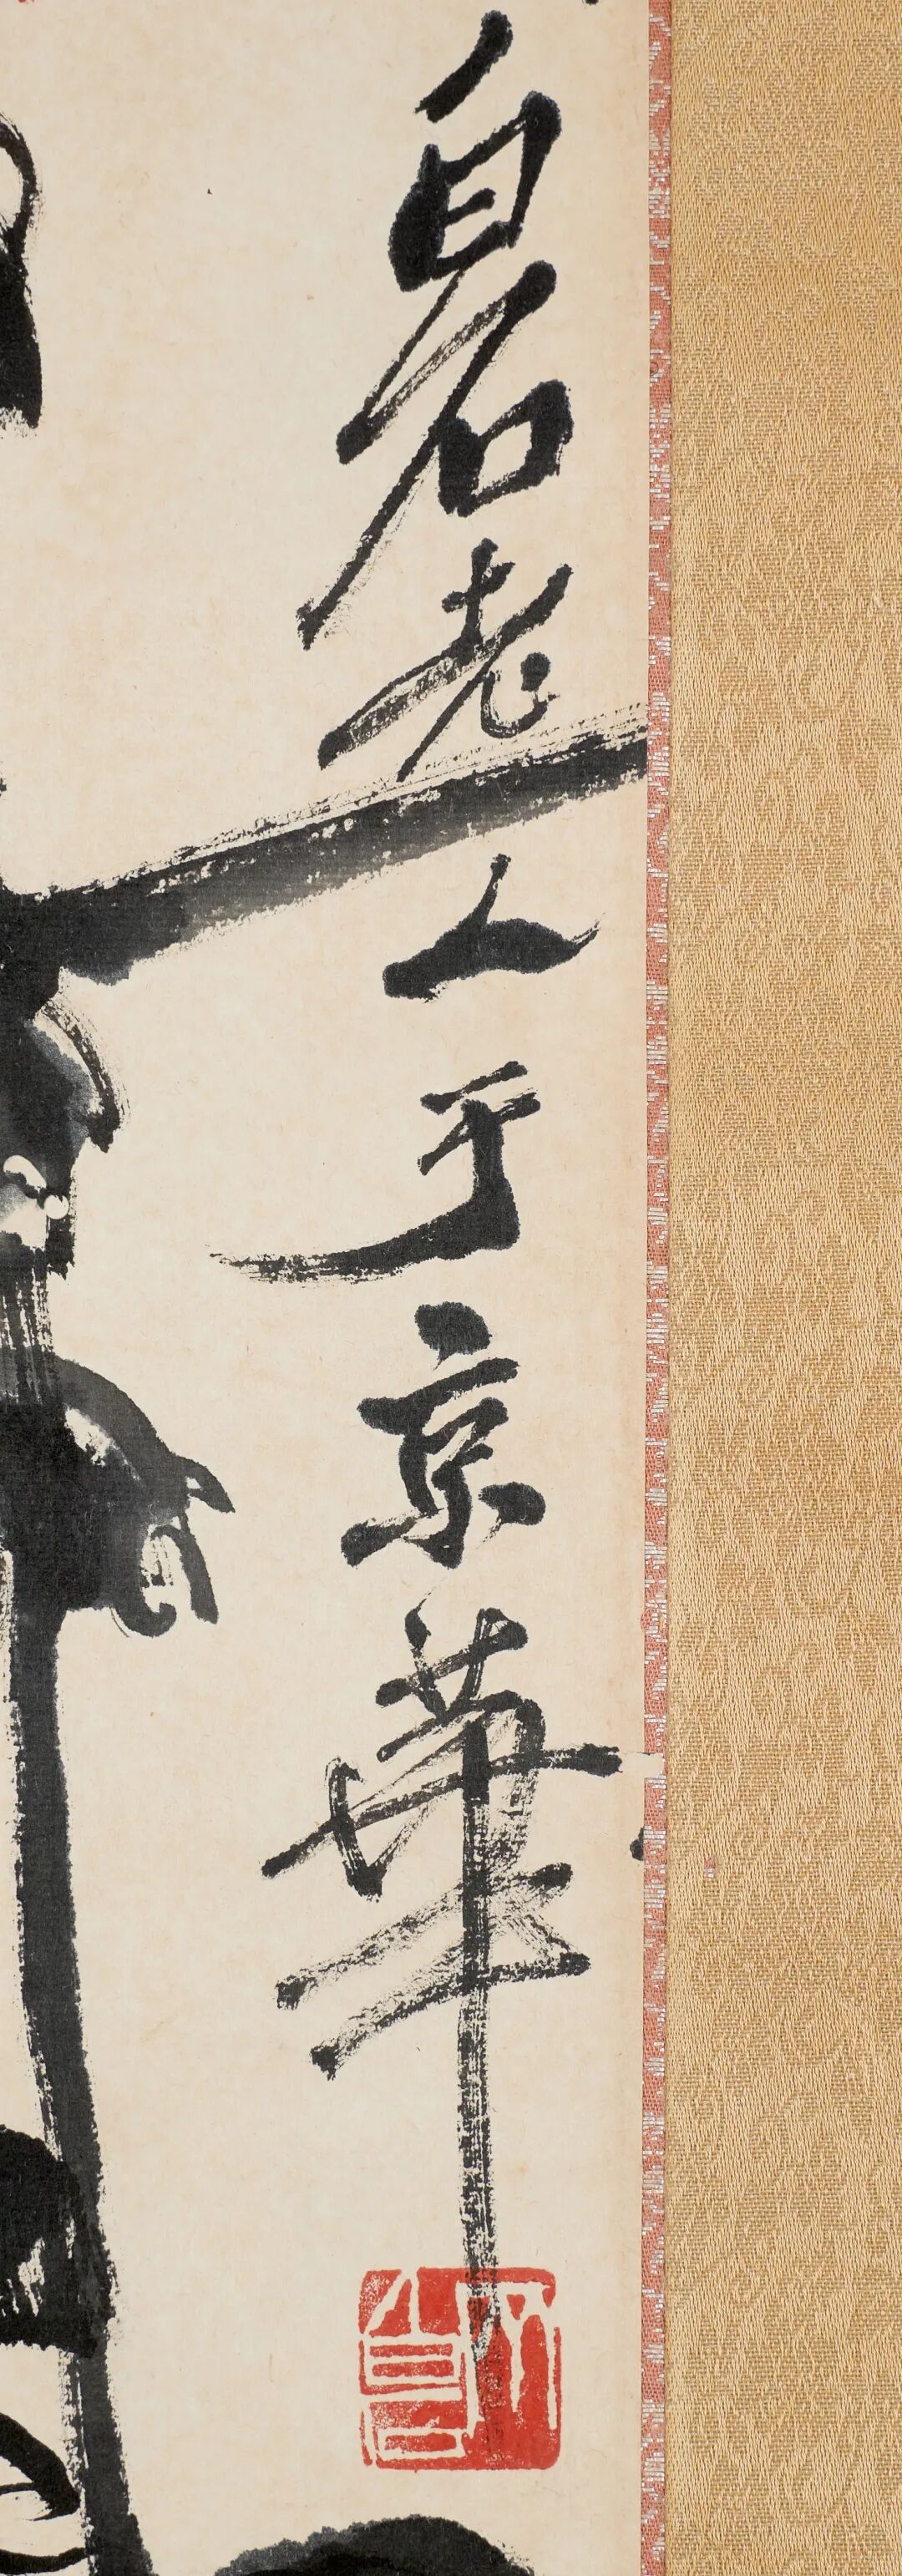 白石老人于京華